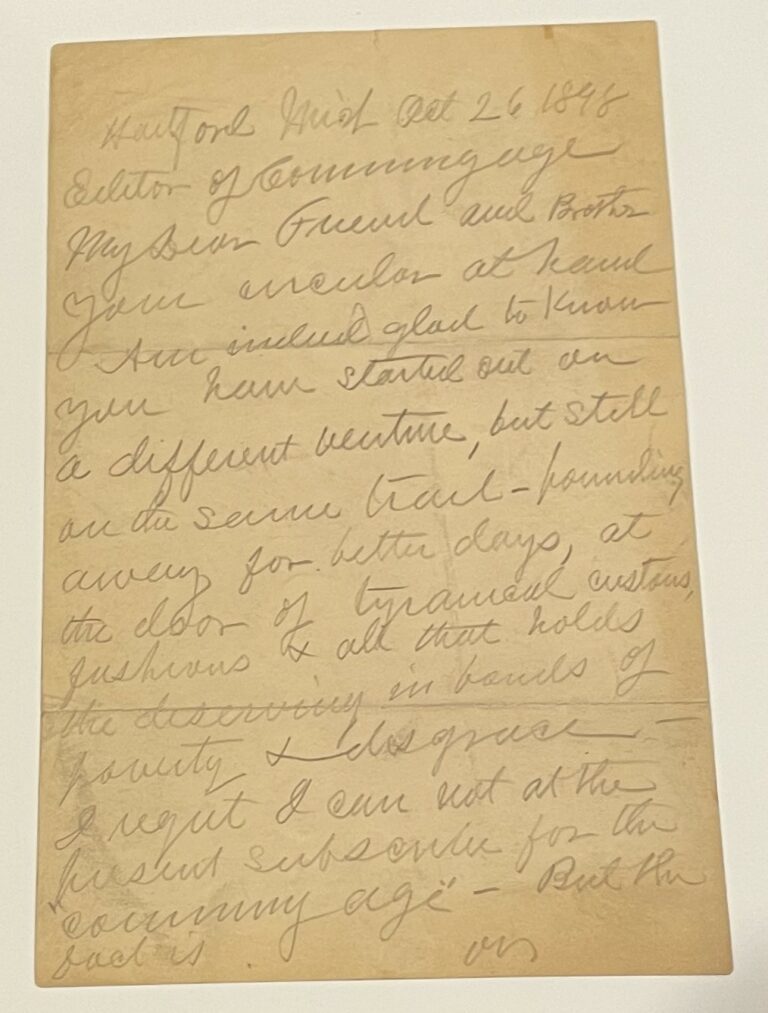 Hartford Mich Oct 26 1898
Editor of Comming age
My Dear Friend and Brother
Your circular at hand
Am indeed glad to know
you have started out on
a different venture, but still
on the same trail - pounding
away for better days, at
the door of tyranical customs,
fashions & all that holds
the deserving in bonds of
poverty & disgrace -
I regret I can not at the
present subscribe for the
"comming age" - But the